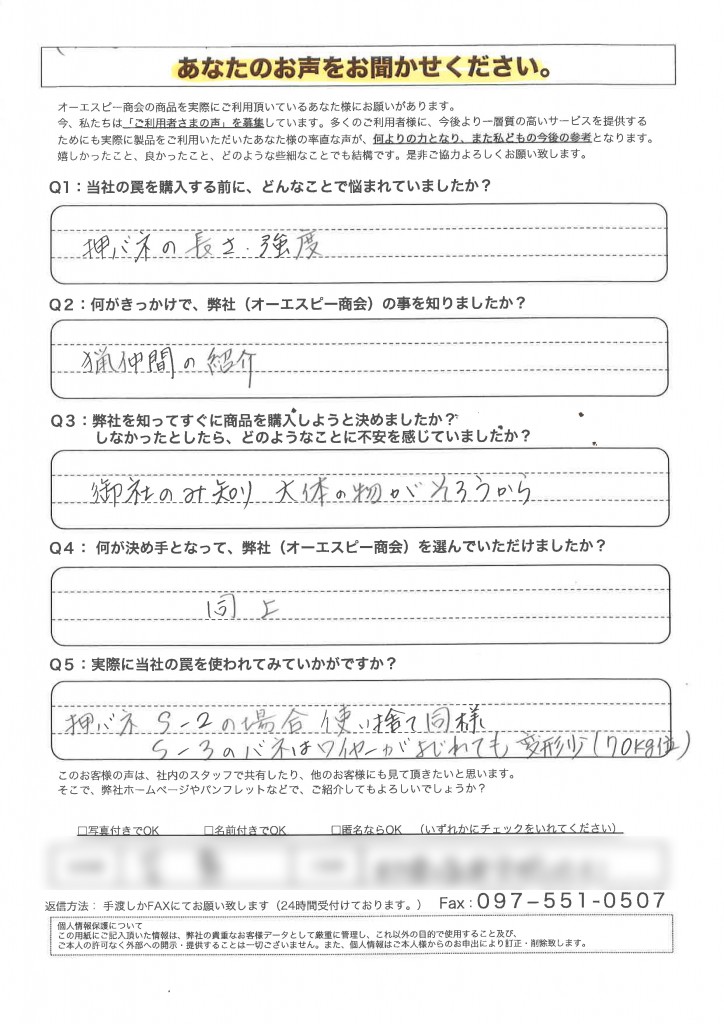 あなたのお声をお聞かせください。
オーエスピー商会の商品を実際にご利用頂いているあなた様にお願いがあります。
今、私たちは「ご利用者さまの声」を募集しています。多くのご利用者様に、今後より一層質の高いサービスを提供する
ためにも実際に製品をご利用いただいたあなた様の率直な声が、何よりの力となり、また私どもの今後の参考となります。
嬉しかったこと、良かったこと、どのような些細なことでも結構です。是非ご協力よろしくお願い致します。
Q1：当社の罠を購入する前に、どんなことで悩まれていましたか？
押バネの長さ・強度
Q2：何がきっかけで、弊社（オーエスピー商会）の事を知りましたか？
猟仲間の紹介
Q3：弊社を知ってすぐに商品を購入しようと決めましたか？
しなかったとしたら、どのようなことに不安を感じていましたか？
御社のみ知り 大体の物がそろうから
Q4： 何が決め手となって、弊社（オーエスピー商会）を選んでいただけましたか？
同上
Q5：実際に当社の罠を使われてみていかがですか？
押バネ S-2の場合 使い捨て同様
S-3のバネはワイヤーがよじれても 変形少(70kg位)
このお客様の声は、社内のスタッフで共有したり、他のお客様にも見て頂きたいと思います。
そこで、弊社ホームページやパンフレットなどで、ご紹介してもよろしいでしょうか？
□写真付きでOK □名前付きでOK □匿名ならOK （いずれかにチェックをいれてください）
返信方法： 手渡しかFAXにてお願い致します（24時間受付けております。） Fax：097-551-0507
個人情報保護について
この用紙にご記入頂いた情報は、弊社の貴重なお客様データとして厳重に管理し、これ以外の目的で使用すること及び、
ご本人の許可なく外部への開示・提供することは一切ございません。また、個人情報はご本人様からのお申出により訂正・削除致します。